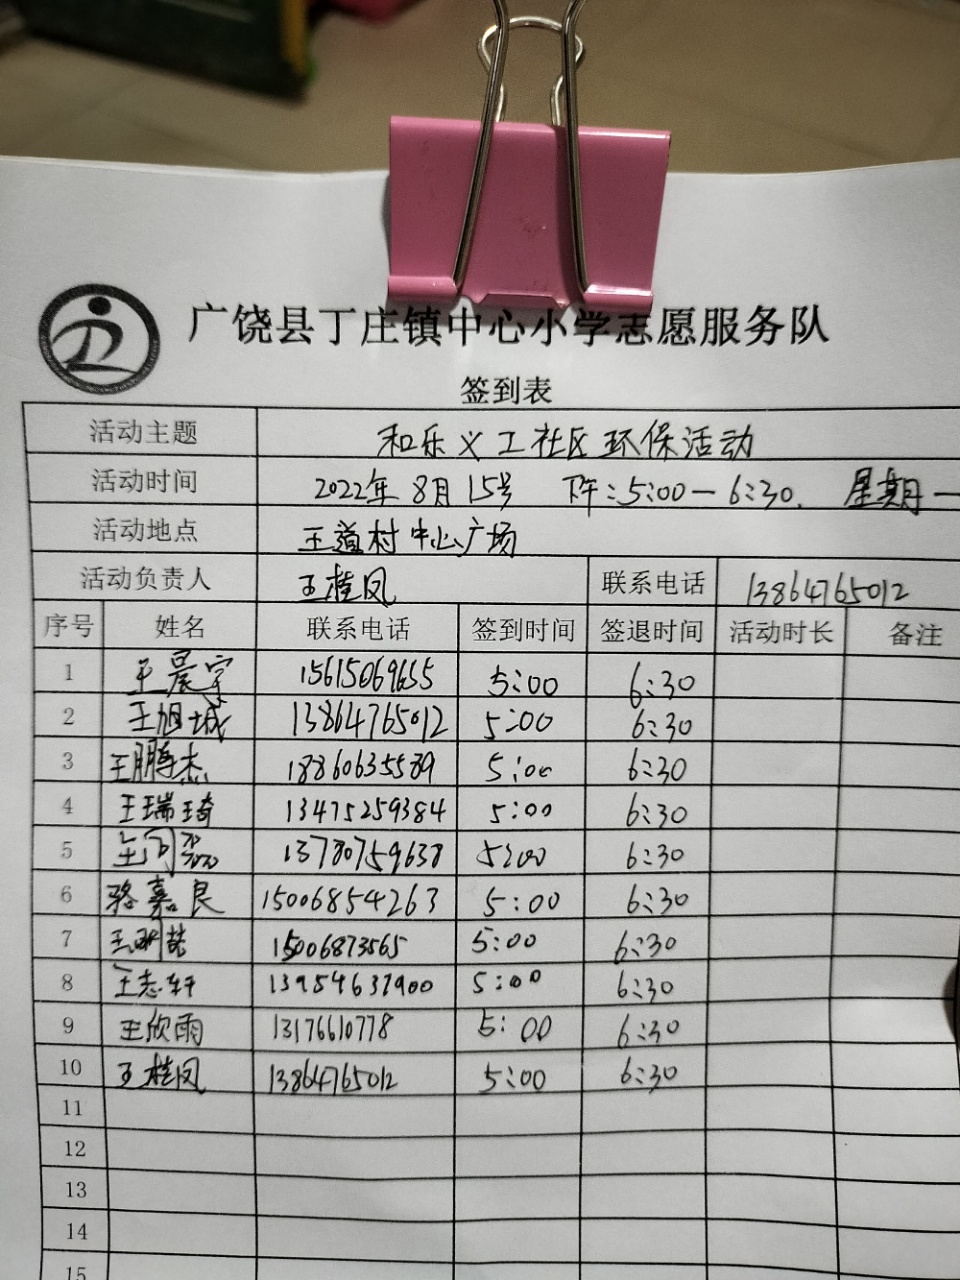 广饶县丁庄镇中心小学志愿服务队
签到表
活动主题 和乐义工社区环保活动
活动时间 2022年8月15号 下午:5:00-6:30. 星期一
活动地点 王道村中心广场
活动负责人 王桂凤 联系电话 13864765012
序号 姓名 联系电话 签到时间 签退时间 活动时长 备注
1 王晨宇 15615069655 5:00 6:30
2 王旭城 13864765012 5:00 6:30
3 王鹏杰 18860635589 5:00 6:30
4 王瑞琦 13475259384 5:00 6:30
5 13780759638 5:00 6:30
6 骆嘉良 15006854263 5:00 6:30
7 王明喆 15006873565 5:00 6:30
8 王志轩 13954637900 5:00 6:30
9 王欣雨 13176610778 5:00 6:30
10 王桂凤 13864765012 5:00 6:30
11
12
13
14
15